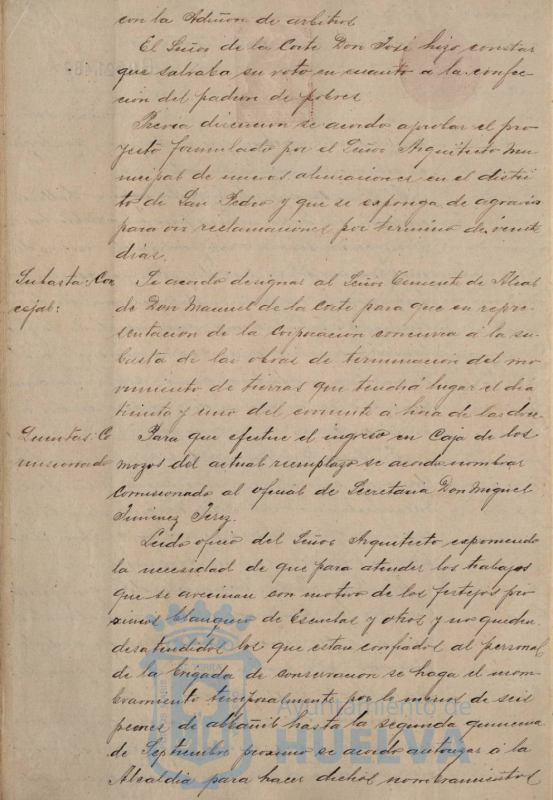 con la Adición de arbitrios
El Señor de la Corte Don José hizo constar
que salvaba su voto en cuanto a la confec
cion del padron de pobres
Previa discucion se acordo aprobar el pro
yecto formulado por el Señor Arquitecto Mu
nicipal de nuevas alineaciones en el distri
to de San Pedro y que se exponga de agravio
para oir reclamaciones por termino de veinte
dias.
Subasta: Con
cejal:
Se acordó designar al Señor Teniente de Alcal
de Don Manuel de la Corte para que en repre
sentacion de la Corporacion concurra á la su
basta de las obras de terminacion del mo
vimiento de tierras que tendrá lugar el dia
treinta y uno del corriente á hora de las doce
Quintas: Co
misionado
Para que efectue el ingreso en Caja de los
mozos del actual reemplazo se acordo nombrar
Comisionado al oficial de Secretaria Don Miguel
Jimenez Perez.
Leido oficio del Señor Arquitecto exponiendo
la necesidad de que para atender los trabajos
que se avecinan con motivo de los festejos pro
ximos blanqueo de Escuelas y otros y no queden
desatendidos los que estan confiados al personal
de la brigada de conservacion se haga el nom
bramiento temporalmente por lo menos de seis
peones de albañil hasta la segunda quincena
de Septiembre proximo se acordó autorizar á la
Alcaldia para hacer dichos nombramientos
Ayuntamiento de
HUELVA